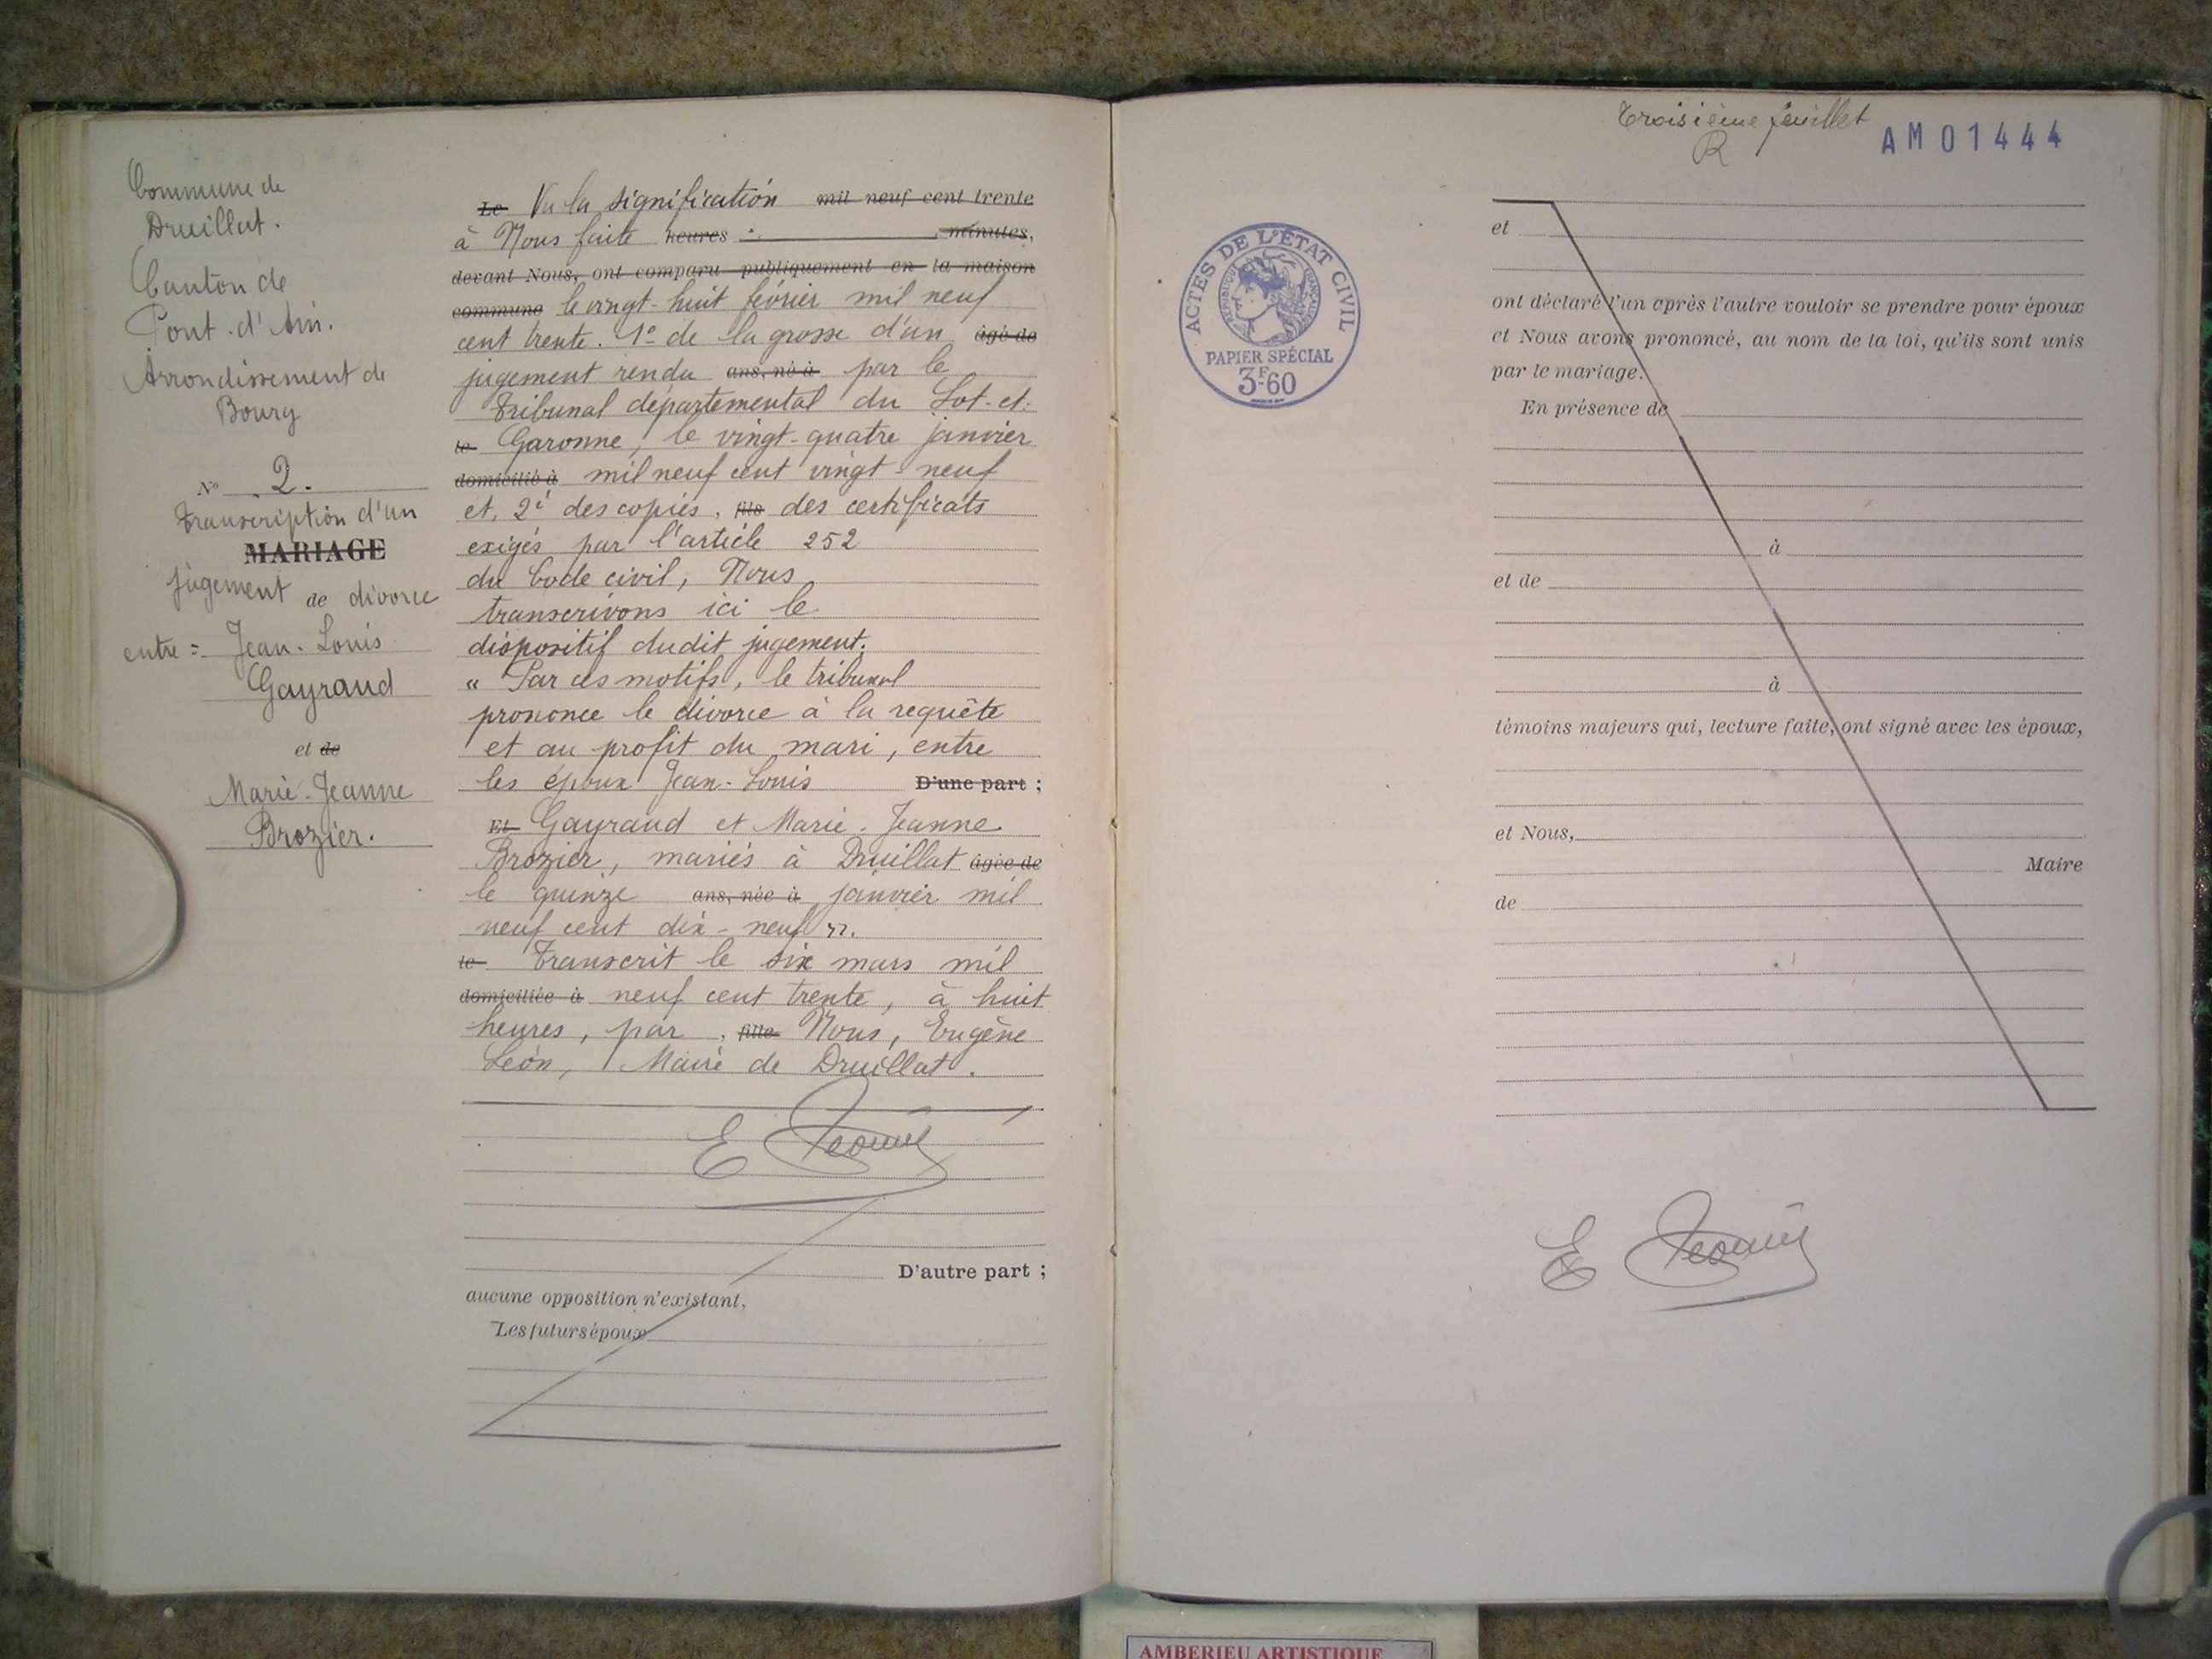 Commune de
Druillat.
Canton de
Pont-d'Ain.
Arrondissement de
Bourg
N° 2.
Transcription d'un
MARIAGE
jugement de divorce
entre = Jean-Louis
Gayraud
et de
Marie-Jeanne
Brozier.
Le Vu la signification mil neuf cent trente
à Nous faite heures : minutes,
devant Nous, ont comparu publiquement en la maison
commune le vingt-huit février mil neuf
cent trente. 1° de la grosse d'un âgé de
jugement rendu ans, né à par le
Tribunal départemental du Lot-et-
le Garonne, le vingt-quatre janvier
domicilié à mil neuf cent vingt-neuf
et, 2° des copies, fils des certificats
exigés par l'article 252
du Code civil, Nous
transcrivons ici le
dispositif dudit jugement.
" Par ces motifs, le tribunal
prononce le divorce à la requête
et au profit du mari, entre
les époux Jean-Louis D'une part ;
Et Gayraud et Marie-Jeanne
Brozier, mariés à Druillat âgée de
le quinze ans, née à janvier mil
neuf cent dix-neuf ".
le Transcrit le six mars mil
domiciliée à neuf cent trente, à huit
heures, par , fille Nous, Eugène
Léon, Maire de Druillat.
D'autre part ;
aucune opposition n'existant,
Les futurs époux
Troisième feuillet
R
AM01444
ACTES DE L'ÉTAT CIVIL
RÉPUBLIQUE FRANÇAISE
PAPIER SPÉCIAL
3F.60
et
ont déclaré l'un après l'autre vouloir se prendre pour époux
et Nous avons prononcé, au nom de la loi, qu'ils sont unis
par le mariage.
En présence de
à
et de
à
témoins majeurs qui, lecture faite, ont signé avec les époux,
et Nous,
Maire
de
AMBERIEU ARTISTIQUE